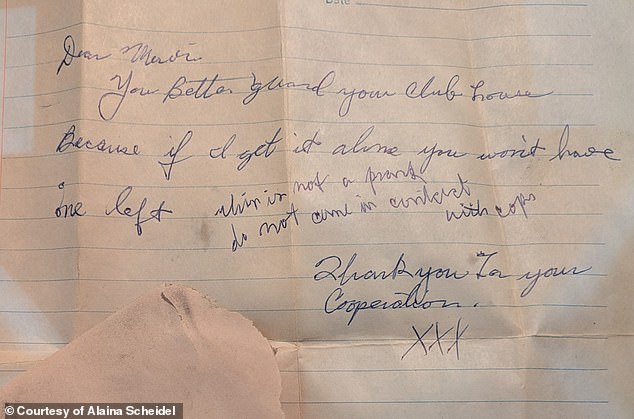 Date
Dear
You Better guard your club house
Because if I get it alone you won't have
one left
this is not a prank
do not come in contact
with cops
Thank you For your
Cooperation.
XXX
© Courtesy of Alaina Scheidel